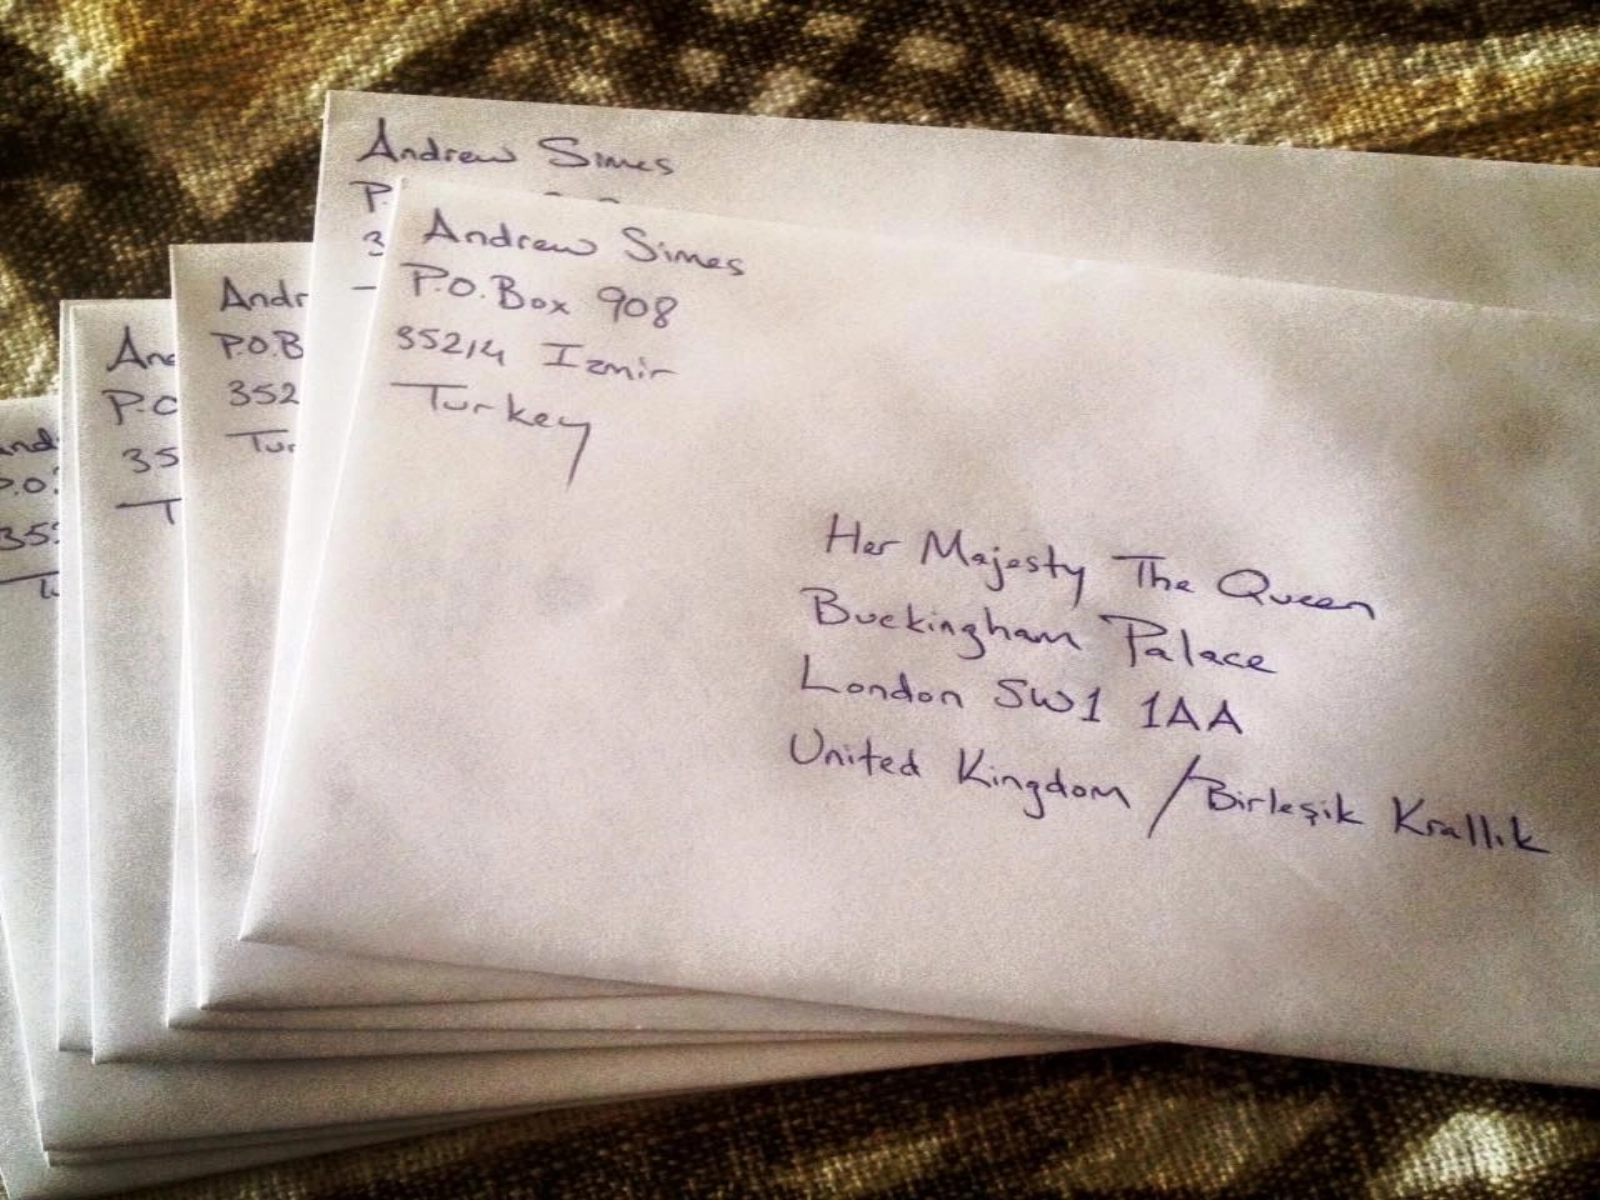 Andrew Simes
P.
3
Andrew Simes
P.O. Box 908
35214 Izmir
Turkey
Her Majesty The Queen
Buckingham Palace
London SW1 1AA
United Kingdom / Birleşik Krallık
Andr
P.O.B
352
Tur
And
P.O
35
T
and
P.O.
35